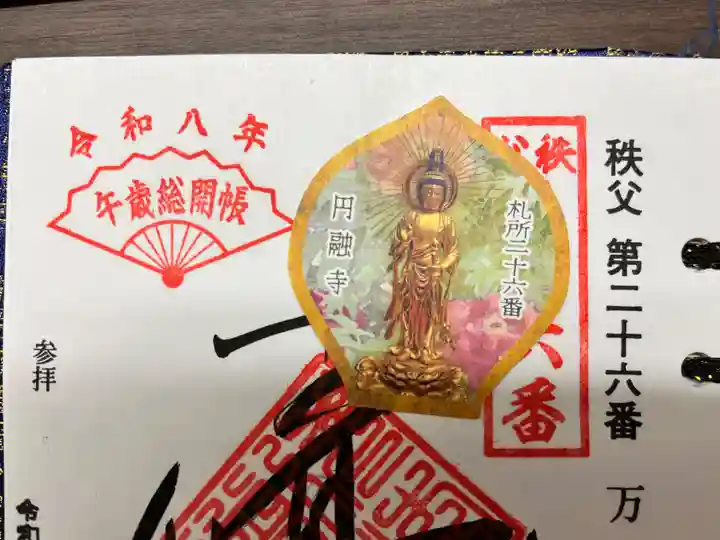 秩父 第二十六番 万
秩
六番
札所二十六番
円融寺
令和八年
午歳総開帳
参拝